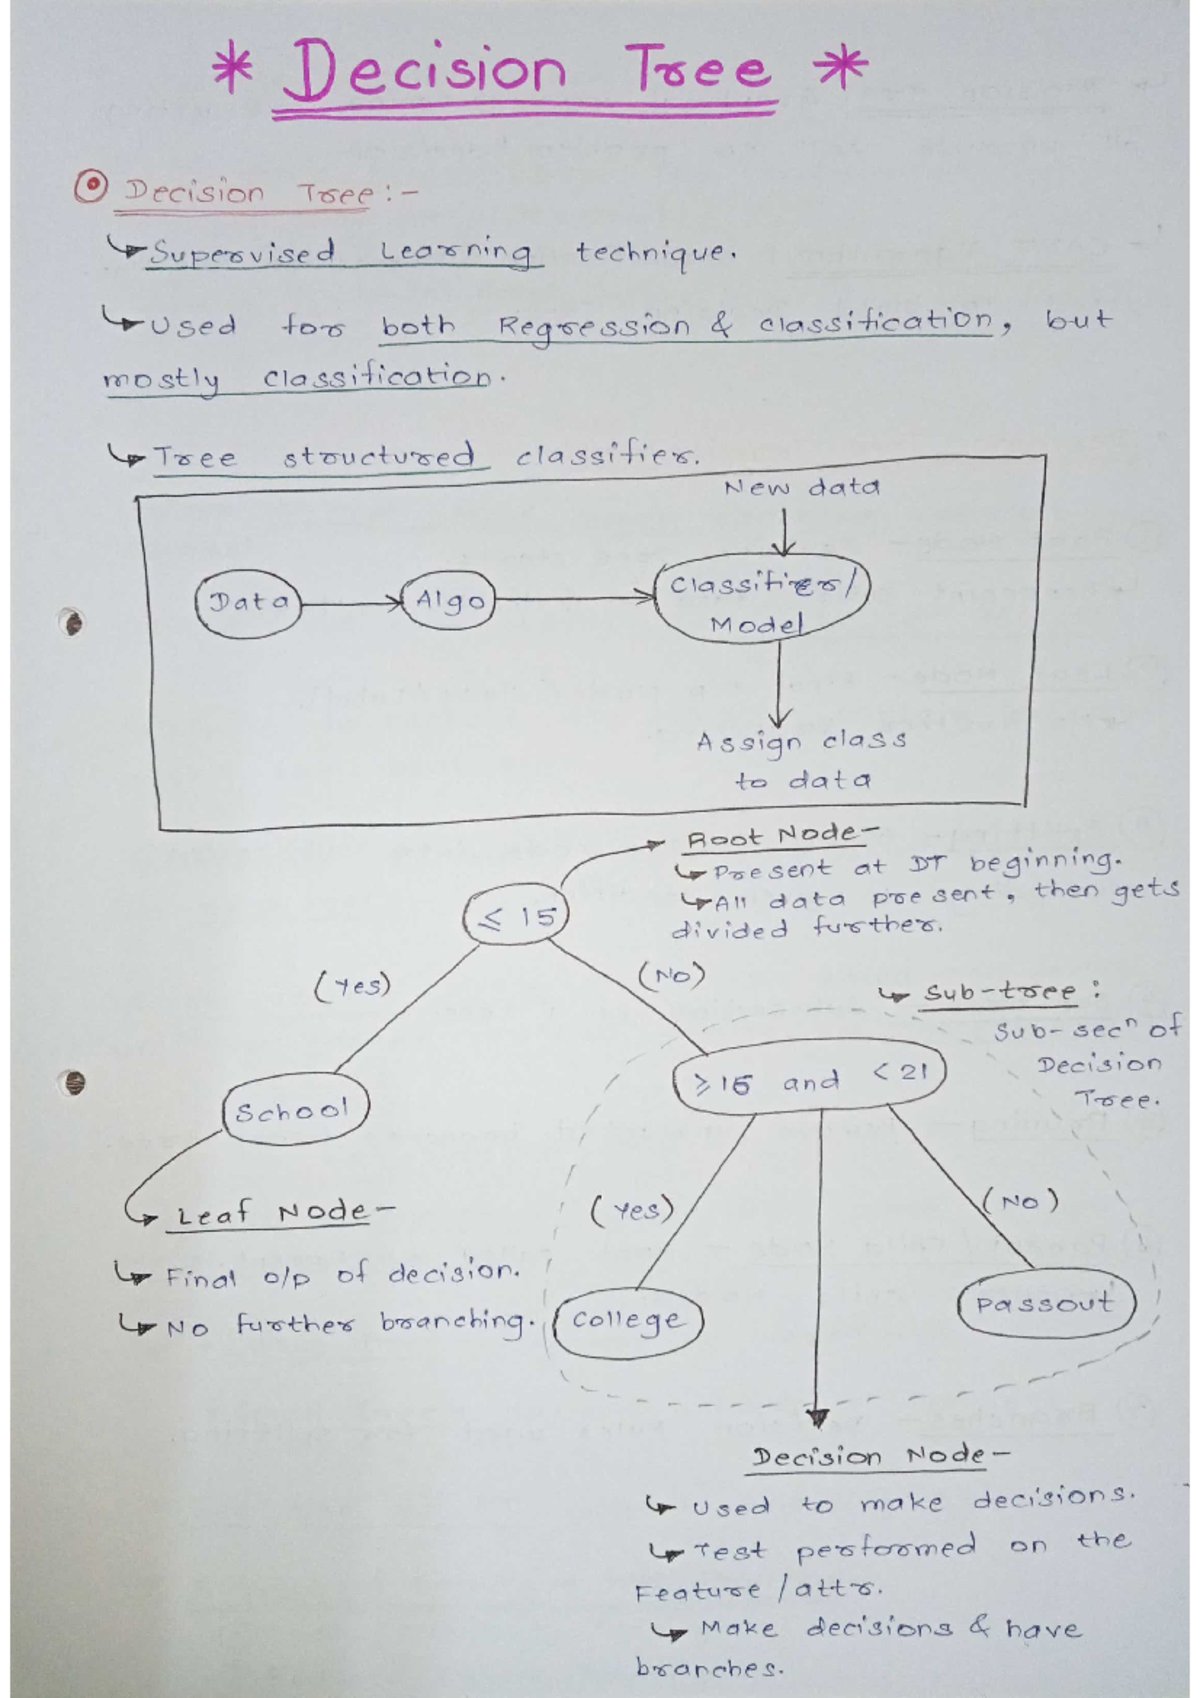 * Decision Tree *
Decision Tree:-
Supervised Learning technique.
Used for both Regression & classification, but
mostly classification.
Tree structured classifier.
New data
Data
Algo
Classifier/
Model
Assign class
to data
Root Node-
Present at DT beginning.
All data present, then gets
divided further.
≤ 15
(Yes)
(No)
Sub-tree:
Sub-secⁿ of
Decision
Tree.
≥ 15 and < 21
School
Leaf Node-
Final o/p of decision.
No further branching.
(Yes)
(No)
College
Passout
Decision Node-
Used to make decisions.
Test performed on the
Feature/attr.
Make decisions & have
branches.